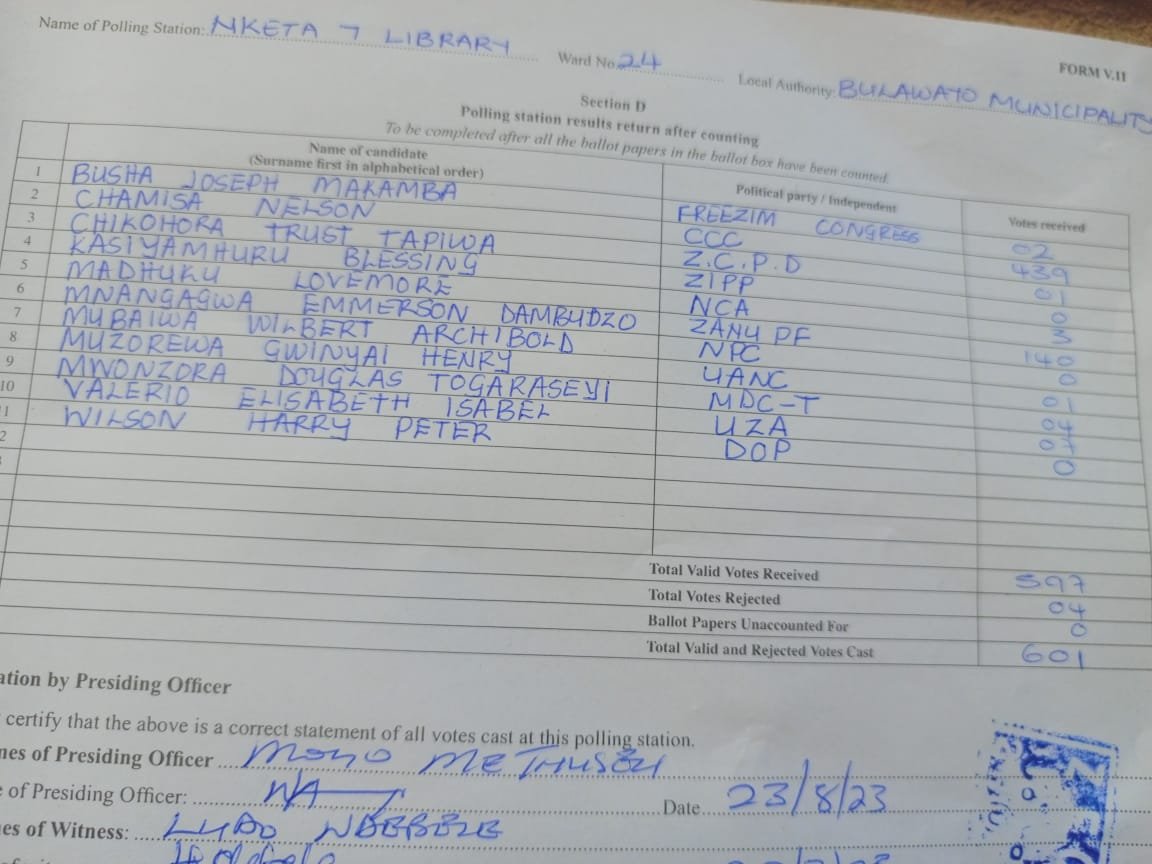 Name of Polling Station: NKETA 7 LIBRARY Ward No 24 Local Authority: BULAWAYO MUNICIPALITY
FORM V.11
Section D
Polling station results return after counting
To be completed after all the ballot papers in the ballot box have been counted.
Name of candidate (Surname first in alphabetical order) Political party / Independent Votes received
1 BUSHA JOSEPH MAKAMBA FREEZIM CONGRESS 02
2 CHAMISA NELSON CCC 439
3 CHIKOHORA TRUST TAPIWA Z.C.P.D 01
4 KASIYAMHURU BLESSING ZIPP 0
5 MADHUKU LOVEMORE NCA 3
6 MNANGAGWA EMMERSON DAMBUDZO ZANU PF 140
7 MUBAIWA WILBERT ARCHIBOLD NPC 0
8 MUZOREWA GWINYAI HENRY UANC 01
9 MWONZORA DOUGLAS TOGARASEYI MDC-T 04
10 VALERIO ELISABETH ISABEL UZA 07
1 WILSON HARRY PETER DOP 0
2
Total Valid Votes Received 597
Total Votes Rejected 04
Ballot Papers Unaccounted For 0
Total Valid and Rejected Votes Cast 601
ation by Presiding Officer
certify that the above is a correct statement of all votes cast at this polling station.
mes of Presiding Officer MOYO METHUSELI
e of Presiding Officer: Date 23/8/23
es of Witness: